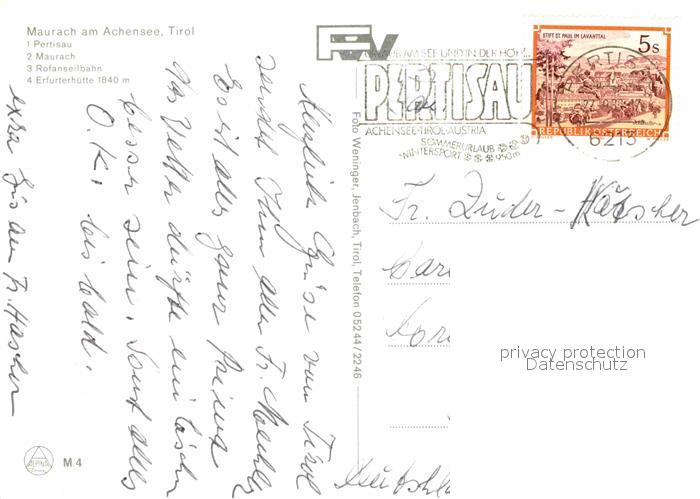 Maurach am Achensee, Tirol
1 Pertisau
2 Maurach
3 Rofanseilbahn
4 Erfurterhütte 1840 m
Herzliche Grüße vom Tirol
sendet Ihnen allen Fr.
Es ist alles ganz prima
das Wetter dürfte ein bischen
besser sein. Sonst alles
O.K. bis bald.
extra Gruß an Fr. Hascher
M 4
Foto Weninger, Jenbach, Tirol, Telefon 05244/2246
URLAUB AM SEE UND IN DER HÖH'
PERTISAU
ACHENSEE-TIROL-AUSTRIA
SOMMERURLAUB
WINTERSPORT 950m
STIFT ST. PAUL IM LAVANTTAL
5s
REPUBLIK ÖSTERREICH
PERTISAU
6213
An
Fr. Zuder-Hascher
privacy protection
Datenschutz